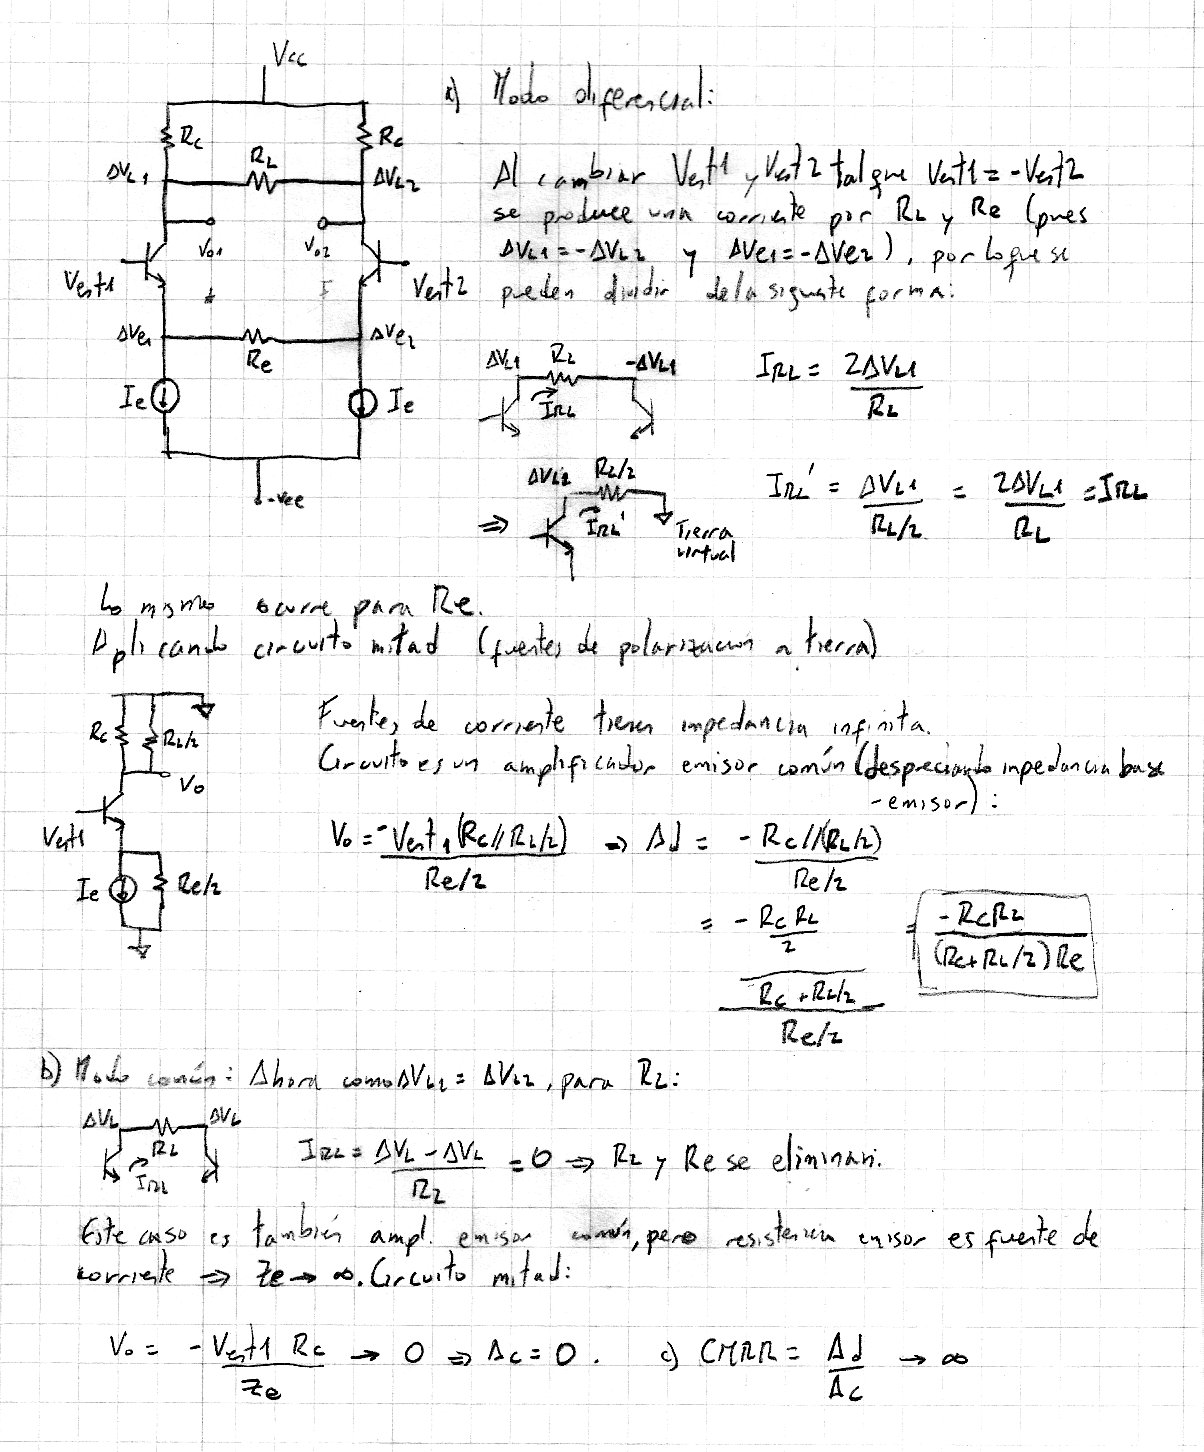 Vcc
Rc
Rc
RL
ΔVL1
ΔVL2
Vo1
Vo2
Vent1
Vent2
ΔVe1
ΔVe2
Re
Ie
Ie
-Vee
a) Modo diferencial:
Al cambiar Vent1 y Vent2 tal que Vent1 = -Vent2
se produce una corriente por RL y Re (pues
ΔVL1 = -ΔVL2 y ΔVe1 = -ΔVe2), por lo que se
pueden dividir de la siguiente forma:
ΔVL1 RL -ΔVL1
IRL
IRL = 2ΔVL1 / RL
ΔVL1 RL/2
⇒ IRL' Tierra virtual
IRL' = ΔVL1 / RL/2 = 2ΔVL1 / RL = IRL
Lo mismo ocurre para Re.
Aplicando circuito mitad (fuentes de polarizacion a tierra)
Rc RL/2
Vo
Vent1
Ie Re/2
Fuentes de corriente tienen impedancia infinita.
Circuito es un amplificador emisor común (despreciando impedancia base
-emisor):
Vo = -Vent1 (Rc//RL/2) / Re/2 ⇒ Ad = -Rc//(RL/2) / Re/2
= -RcRL/2 / Rc+RL/2 / Re/2 = -RcRL / (Rc+RL/2)Re
b) Modo común: Ahora como ΔVL1 = ΔVL2, para RL:
ΔVL ΔVL
RL
IRL
IRL = ΔVL - ΔVL / RL = 0 ⇒ RL y Re se eliminan.
Este caso es también ampl. emisor común, pero resistencia emisor es fuente de
corriente ⇒ Ze → ∞. Circuito mitad:
Vo = -Vent1 Rc / Ze → 0 ⇒ Ac = 0. c) CMRR = Ad / Ac → ∞